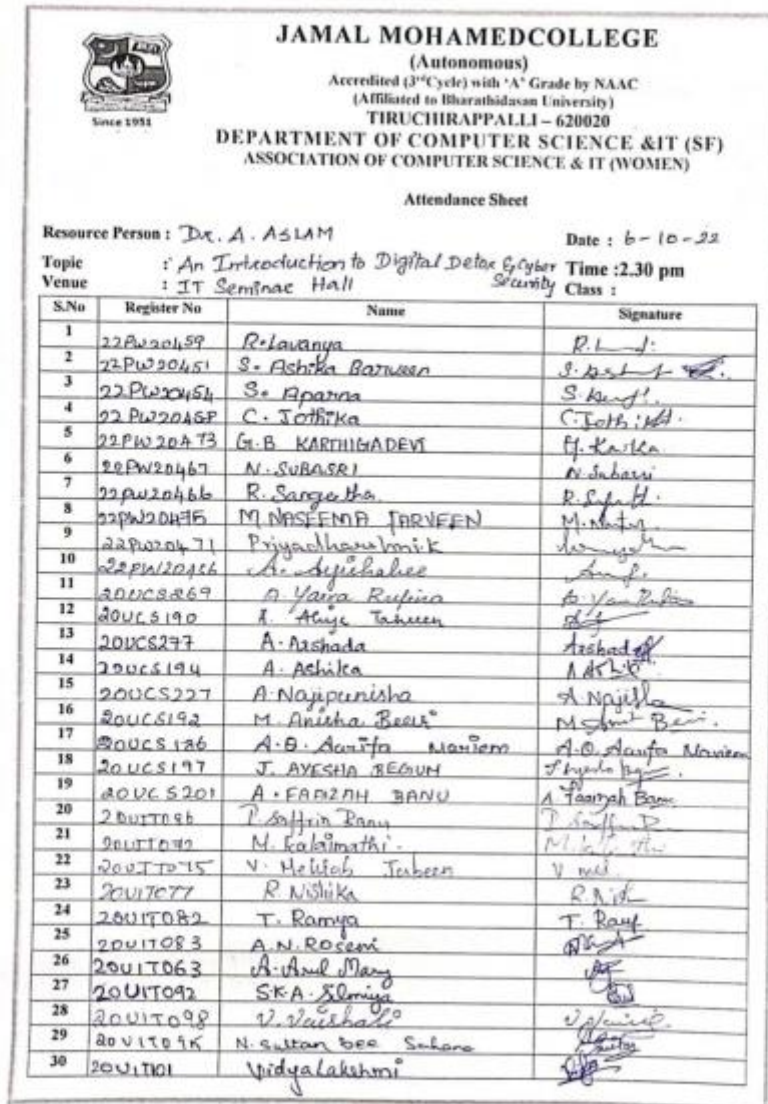 JAMAL MOHAMEDCOLLEGE
(Autonomous)
Accredited (3rdCycle) with 'A' Grade by NAAC
(Affiliated to Bharathidasan University)
TIRUCHIRAPPALLI – 620020
DEPARTMENT OF COMPUTER SCIENCE &IT (SF)
ASSOCIATION OF COMPUTER SCIENCE & IT (WOMEN)
Since 1951
Attendance Sheet
Resource Person : Dr. A. ASLAM Date : 6-10-22
Topic : An Introduction to Digital Detox & Cyber Security Time :2.30 pm
Venue : IT Seminar Hall Class :
S.No Register No Name Signature
1 22PW20459 R. Lavanya
2 22PW20451 S. Ashika Barween
3 22PW20454 S. Aparna
4 22PW20458 C. Jothika C. Jothika
5 22PW20473 G.B KARTHIGADEVI
6 22PW20467 N. SUBASRI N. Subasri
7 22PW20466 R. Sangeetha
8 22PW20475 M. NASEEMA
9 22PW20471
10
11 20UCS269 A. Yaira Rufina
12 20UCS190
13 20UCS277 A. Arshada Arshada
14 20UCS194 A. Ashika
15 20UCS227 A. Najipunisha
16 20UCS192 M. Anisha
17 20UCS186 A.O. Aarifa Mariem A.O. Aarifa Mariem
18 20UCS197 J. AYESHA BEGUM
19 20UCS201 A. FAAIZAH BANU A. Faaizah Banu
20 Banu
21 M. Kalaimathi
22 20UIT075 V.
23 20UIT077 R. Nishika
24 20UIT082 T. Ramya
25 20UIT083 A.N. Roseni
26 20UIT063 A. Arul Mary
27 20UIT092 S.K.A. Silmiya
28 20UIT098 V. Vaishali
29 N. Sultan bee
30 20UIT101 Vidyalakshmi